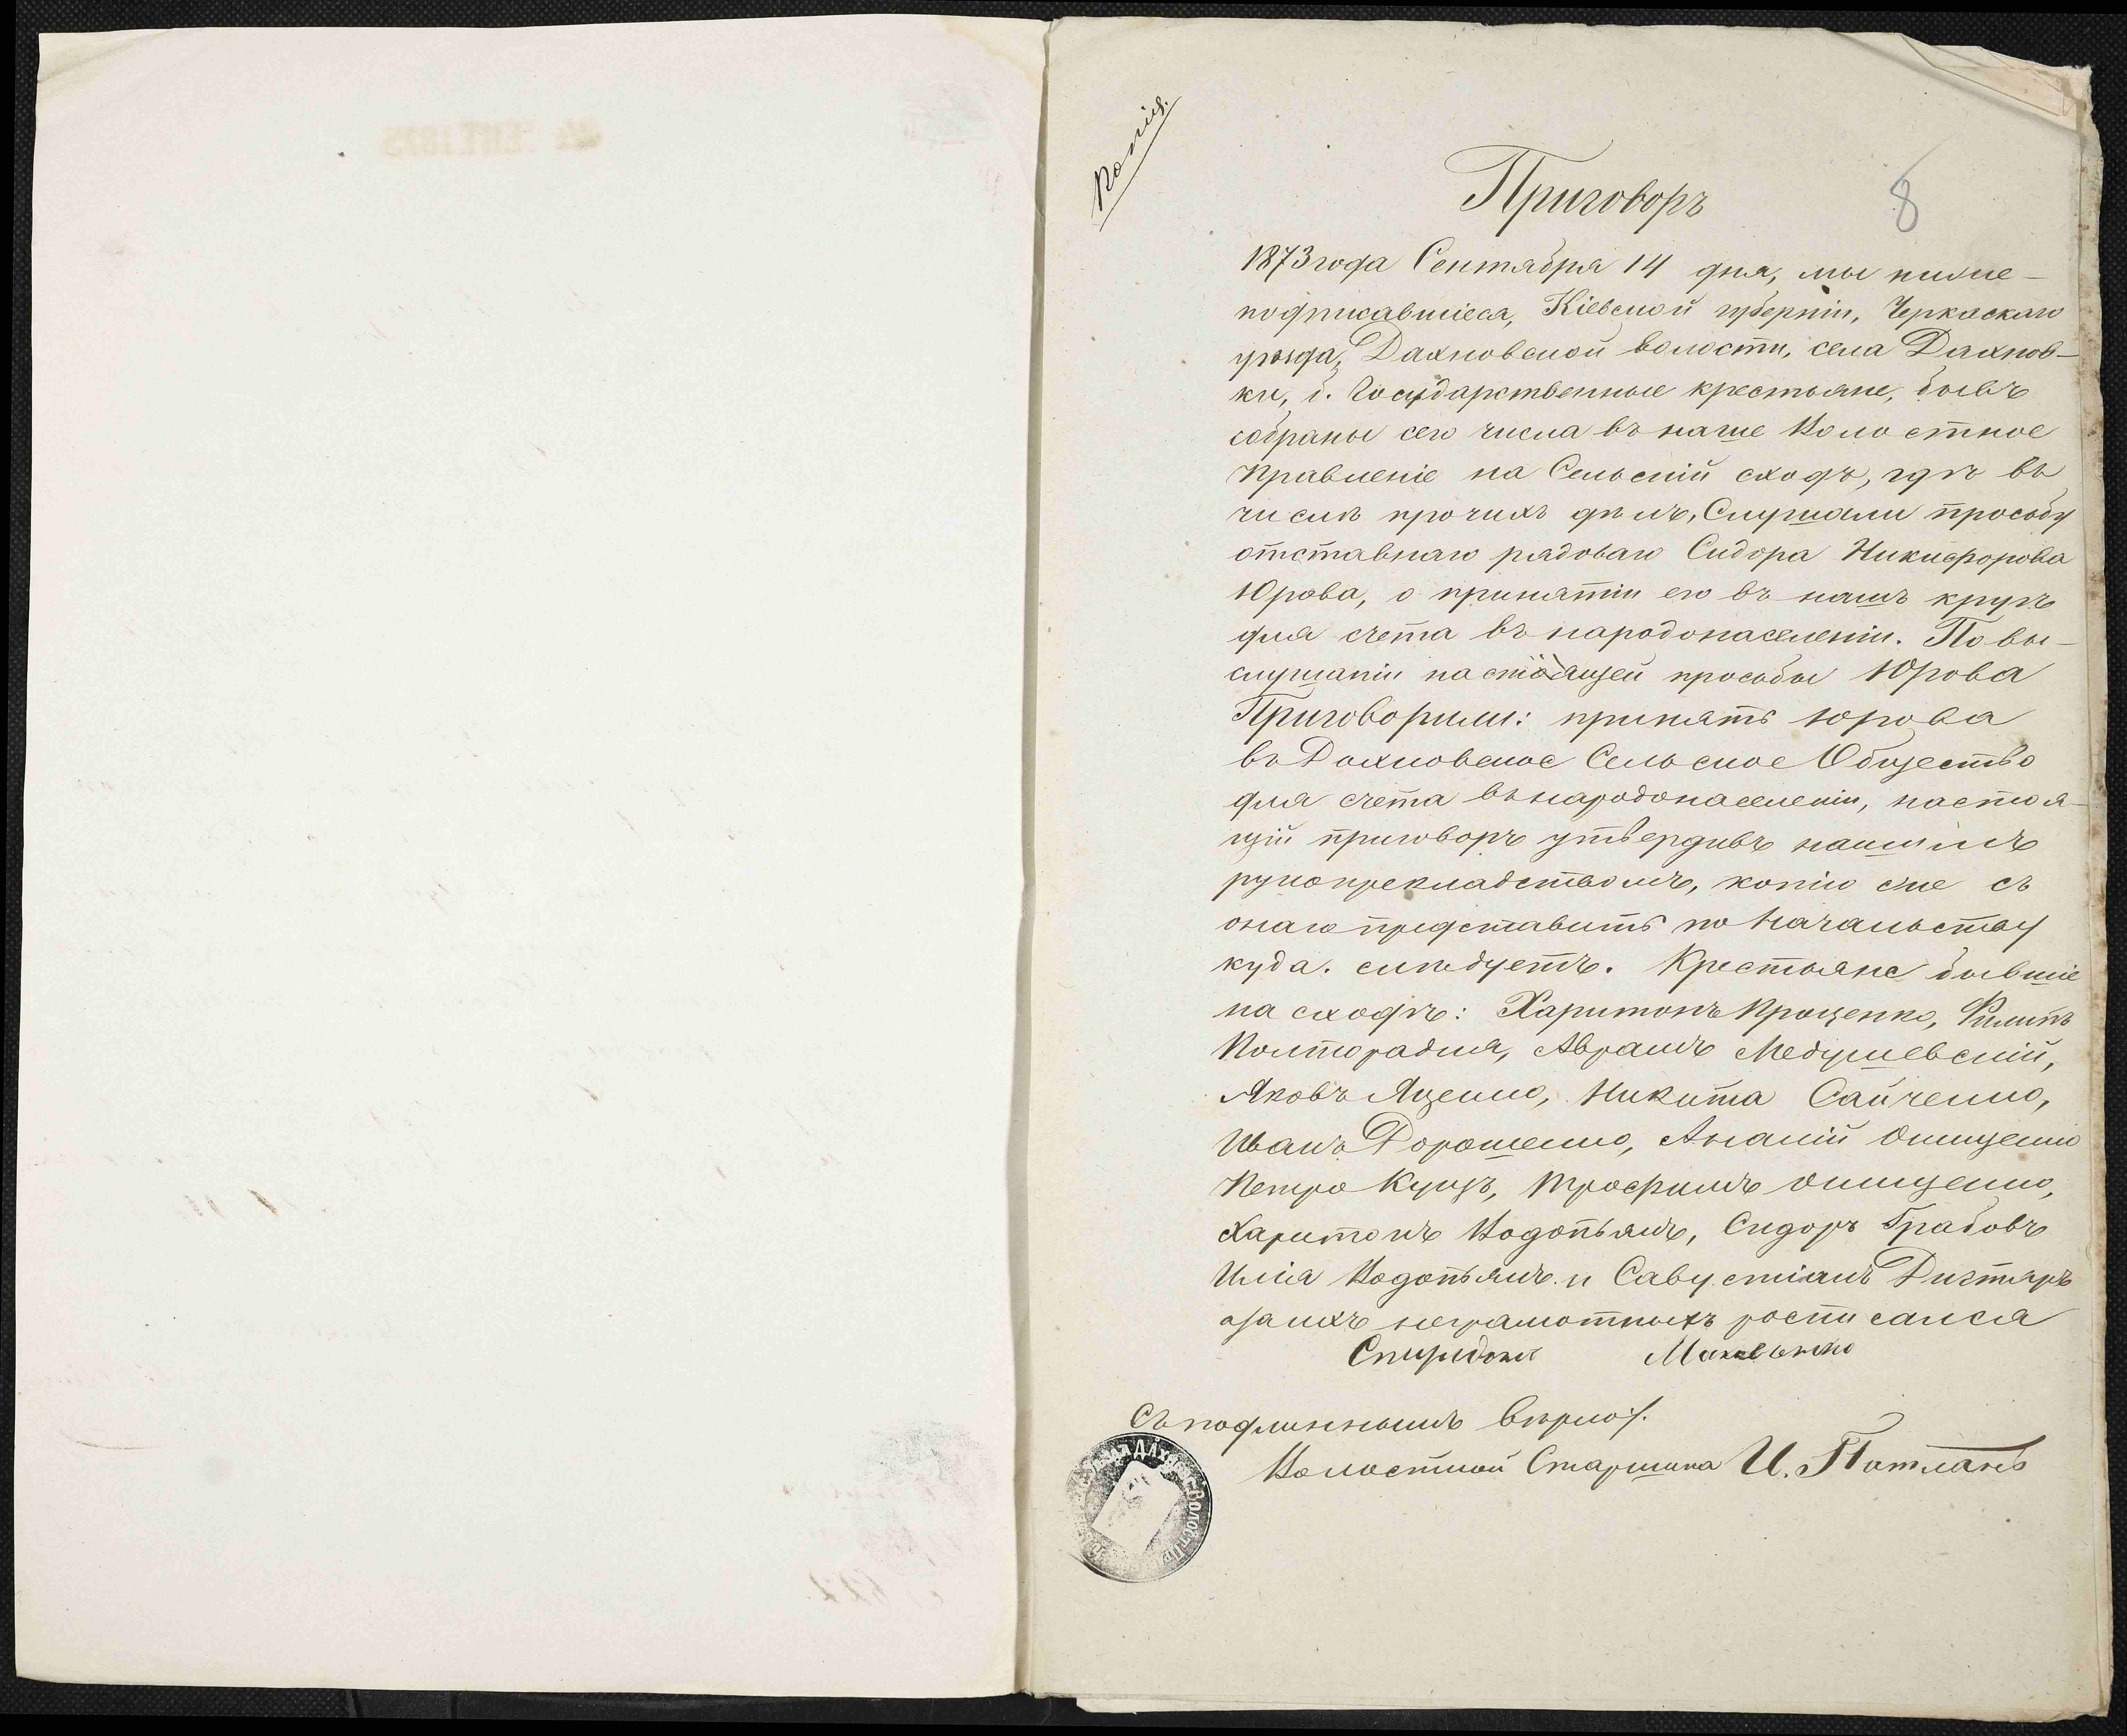 Копія.
8
Приговоръ
1873 года Сентября 14 дня, мы ниже-
подписавшіеся, Кіевской губерніи, Черкаскаго
уѣзда, Дахновской волости, села Дахнов-
ки, б. Государственные крестьяне, бывъ
собраны сего числа въ наше Волостное
Правленіе на Сельскій сходъ, гдѣ въ
числѣ прочихъ дѣлъ, Слушали просьбу
отставнаго рядоваго Сидора Никифорова
Юрова, о принятіи его въ нашъ кругъ
для счета въ народонаселеніи. По вы-
слушаніи настоящей просьбы Юрова
Приговорили: принять Юрова
въ Дахновское Сельское Общество
для счета въ народонаселеніи, настоя-
щій приговоръ утвердивъ нашимъ
рукопрекладствомъ, копію же съ
онаго представить по Начальству
куда слѣдуетъ. Крестьяне бывшіе
на сходѣ: Харитонъ Проценко, Филипъ
Полторадня, Аврамъ Медушевскій,
Яковъ Яценко, Никита Сайченко,
Иванъ Дорошенко, Ананій Онищенко
Петро Куцъ, Трофимъ Онищенко,
Харитонъ Водопьянъ, Сидоръ Грабовъ
Илія Водопьянъ и Савустіянъ Дигтяръ
а за нихъ неграмотныхъ росписался
Спиридонъ
Съ подлиннымъ вѣрно:
Волостной Старшина И. Патланъ